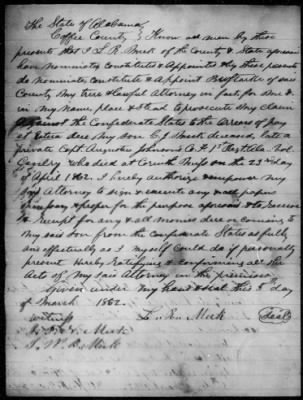 The State of Alabama
Coffee County } Know all men by these
presents that I L. R. Meek of the County & State aforesaid
have Nominated Constituted & Appointed & by these presents
do Nominate Constitute & Appoint of said
County My true & Lawful Attorney in fact for me &
in my Name, place & stead to prosecute My Claim
against the Confederate States to the arrears of pay
at extra due My Son C. J. Meek deceased, late a
private Capt. Augustus Johnson's Co. 1st Regt Ala. Vol.
Cavalry & who died at Corinth Miss on the 23rd day
of April 1862. I hereby authorize & empower my
said Attorney to sign & execute any & all papers
necessary & proper for the purpose aforesaid & to receive
& Receipt for any & all monies due or coming to
My said son from the Confederate States as fully
and effectually as I myself could do if personally
present Hereby Ratifying & confirming all the
Acts of My said Attorney in the premises
Given under my hand & seal this 5th day
of March 1862.
witness L. R. Meek Seal
Meek
J. W. Meek